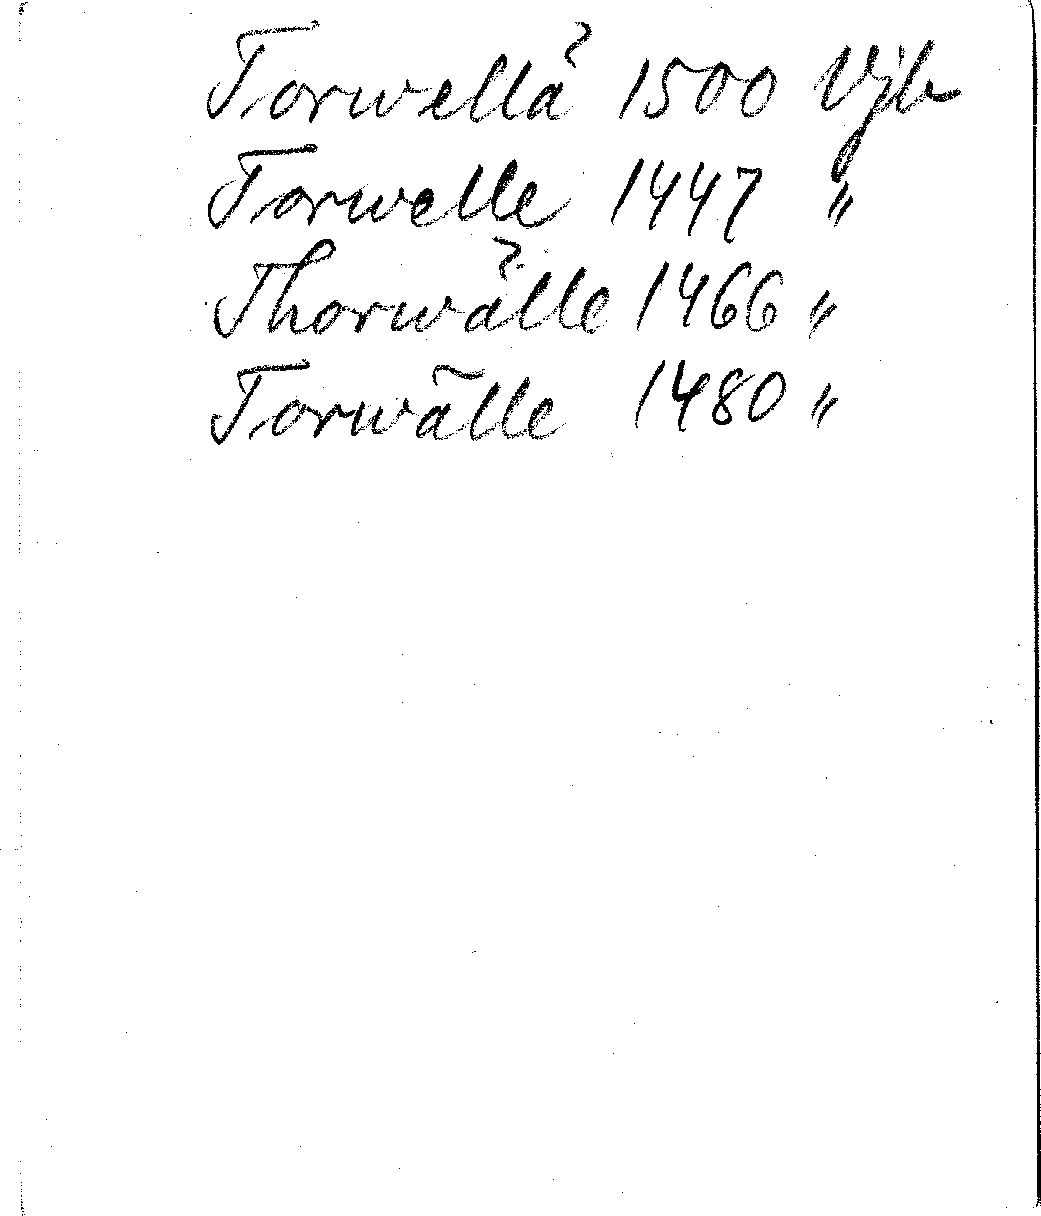 Torwellä 1500 Vjb
Torwelle 1447 "
Thorwälle 1466 "
Torwälle 1480 "